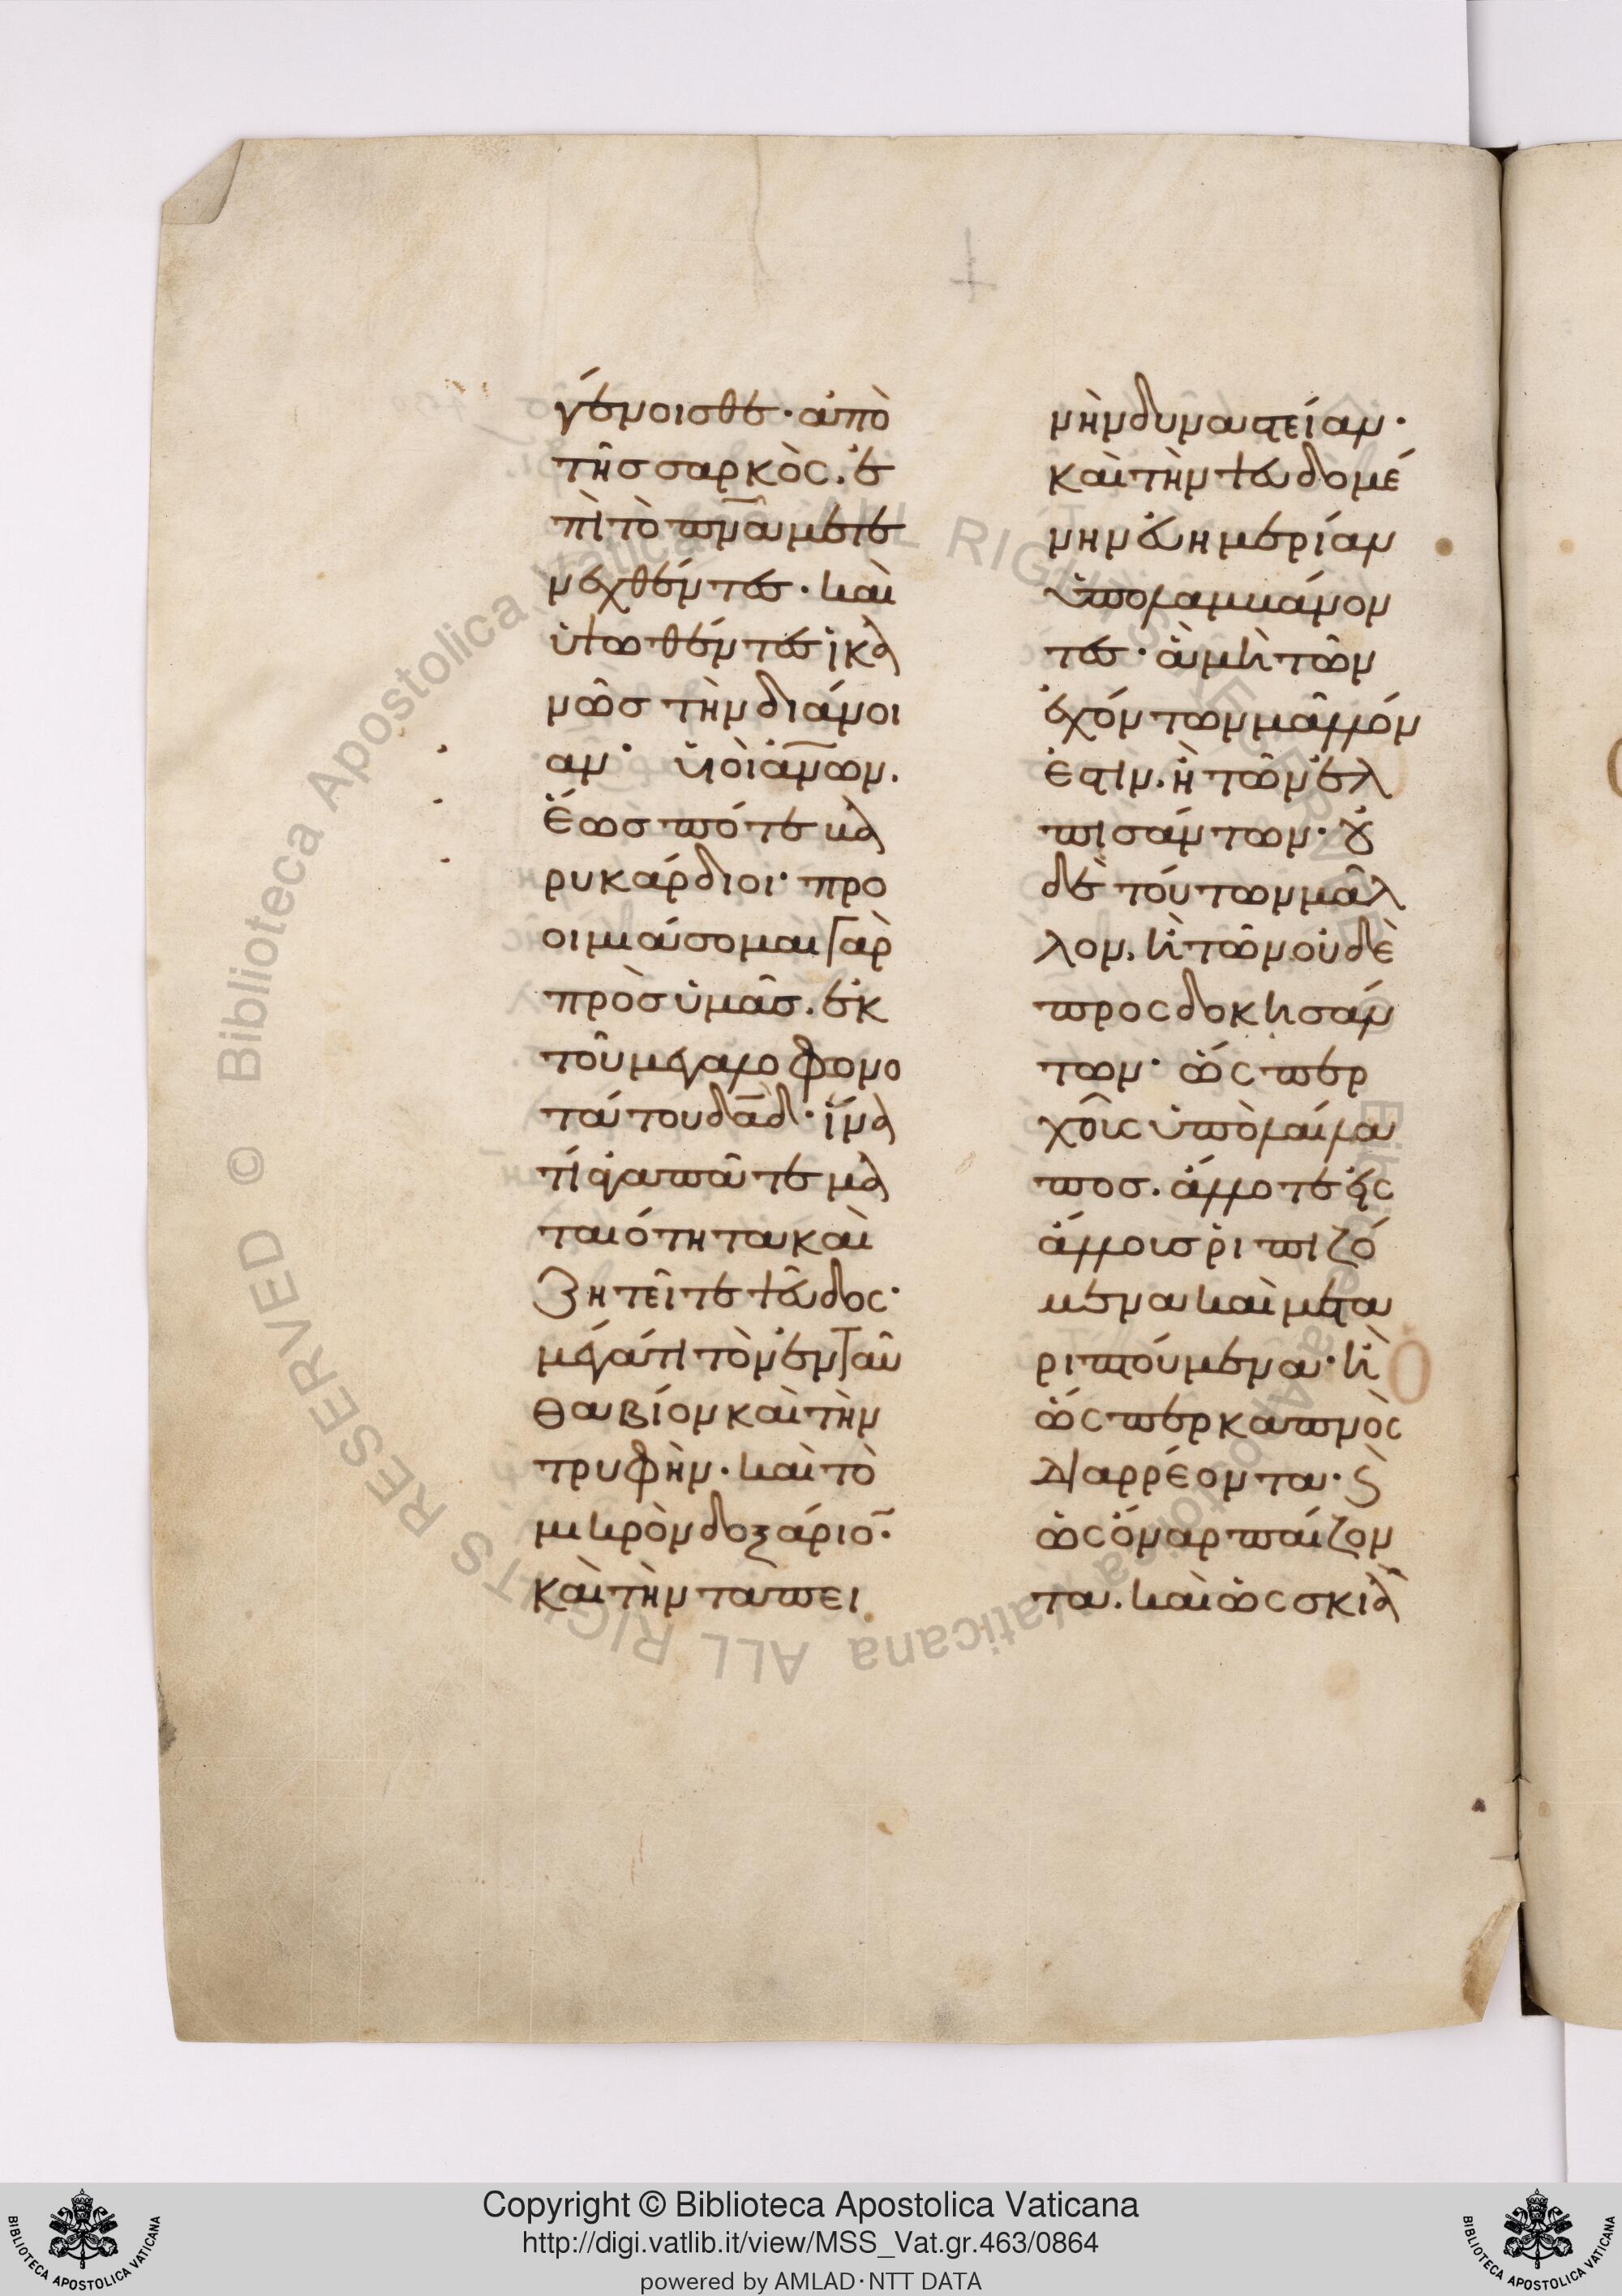 γένοισθε· ἀπὸ
τῆς σαρκὸς. ἐ
πὶ τὸ πνα μετε
νεχθέντες· καὶ
ὑψωθέντες ἱκα
νῶς τὴν διάνοι
αν· υἱοὶ ἀνων.
ἕως πότε βα
ρυκάρδιοι· προ
οιμιάσομαι γὰρ
πρὸς ὑμᾶς. ἐκ
τοῦ μεγαλοφωνο
τάτου δαδ· ἵνα
τί ἀγαπᾶτε μα
ταιότητα καὶ
ζητεῖτε ψεῦδος·
μέγα τί τὸν ἐνταῦ
θα βίον καὶ τὴν
τρυφὴν· καὶ τὸ
μικρὸν δοξάριο·
καὶ τὴν ταπει
νὴν δυναστείαν·
καὶ τὴν ψευδομέ
νην εὐημερίαν
ὑπολαμβάνον
τες· ἃ μὴ τῶν
ἐχόντων μᾶλλόν
ἐστιν. ἢ τῶν ἐλ
πισάντων· οὐ
δὲ τούτων μᾶλ
λον, ἢ τῶν οὐδὲ
προσδοκησάν
των· ὥσπερ
χοῦς ὑπὸ λαίλα
πος. ἄλλοτε εἰς
ἄλλους ῥιπιζό
μενα καὶ μετα
ριπτούμενα· ἢ
ὥσπερ καπνὸς
διαρρέοντα· καὶ
ὡς ὄναρ παίζον
τα. καὶ ὡς σκιὰ
Copyright © Biblioteca Apostolica Vaticana
http://digi.vatlib.it/view/MSS_Vat.gr.463/0864
powered by AMLAD·NTT DATA